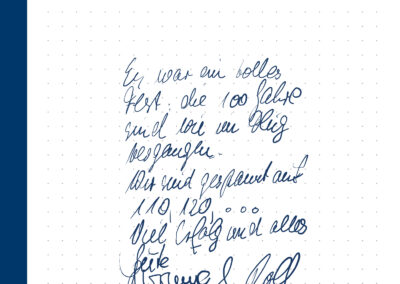 Es war ein tolles
Fest, die 100 Jahre
sind wie im Flug
vergangen.
Wir sind gespannt auf
110, 120, ...
Viel Erfolg und alles
Gute
& Rolf